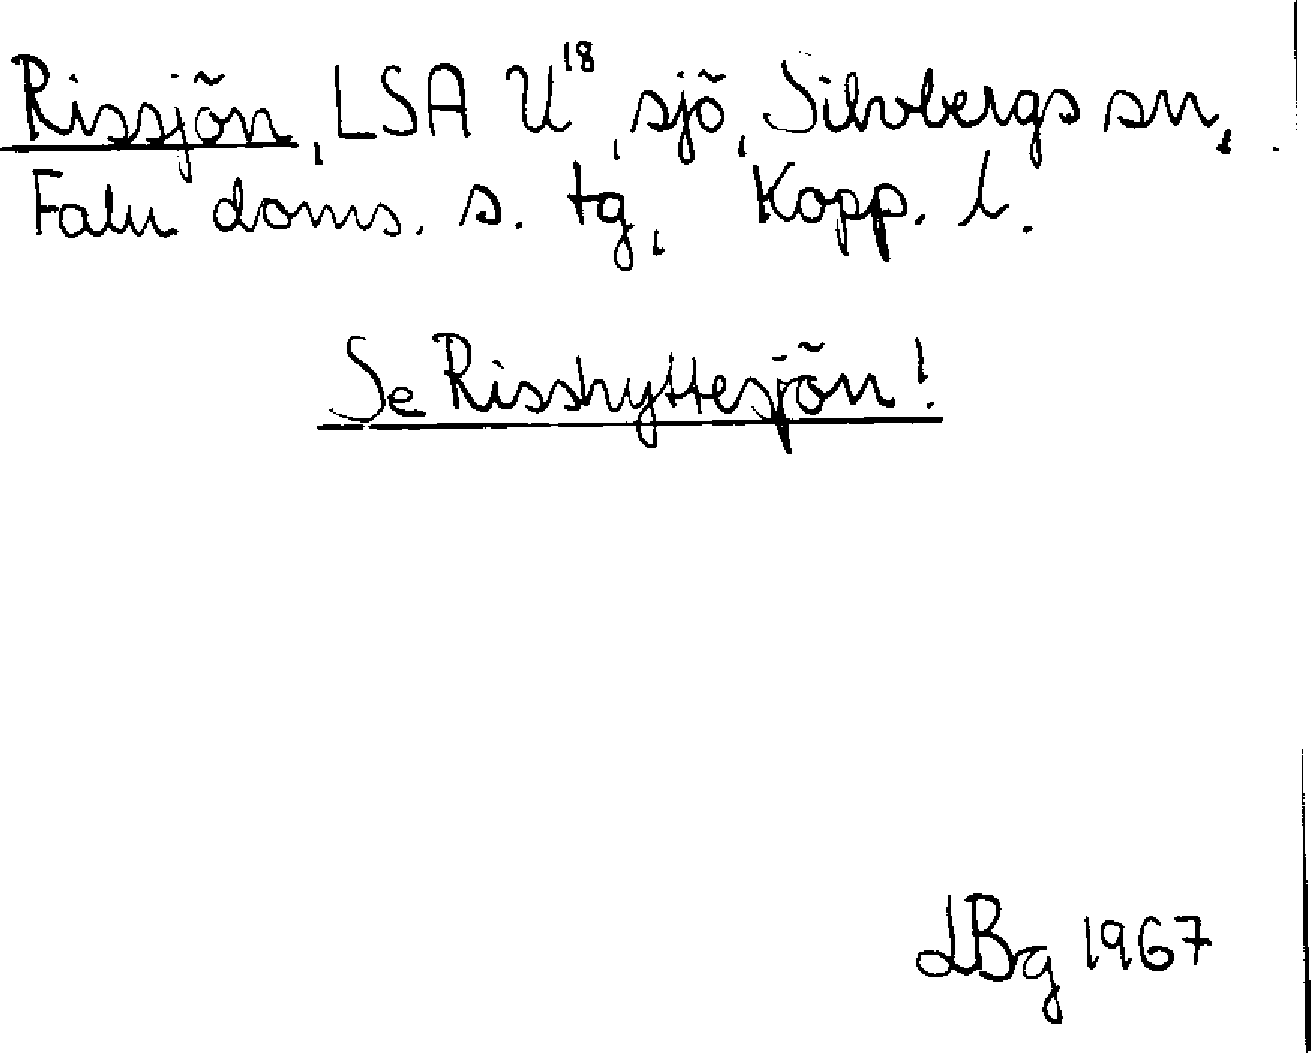 Rissjön, LSA U¹⁸, sjö, Silvbergs sn,
Falu doms. s. tg, Kopp. l.
Se Risshyttesjön!
LBg 1967